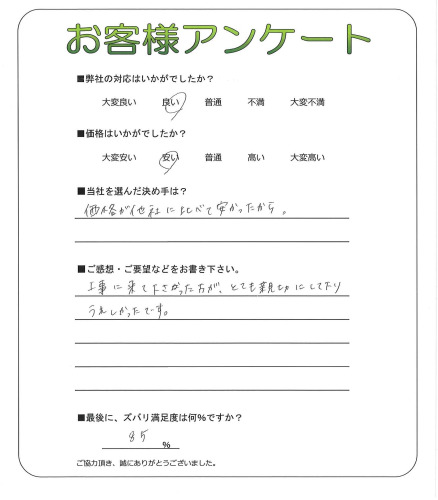 お客様アンケート
■弊社の対応はいかがでしたか?
大変良い 良い 普通 不満 大変不満
■価格はいかがでしたか?
大変安い 安い 普通 高い 大変高い
■当社を選んだ決め手は?
価格が他社に比べて安かったから。
■ご感想・ご要望などをお書き下さい。
工事に来て下さった方が、とても親切にして下り
うれしかったです。
■最後に、ズバリ満足度は何%ですか?
85 %
ご協力頂き、誠にありがとうございました。